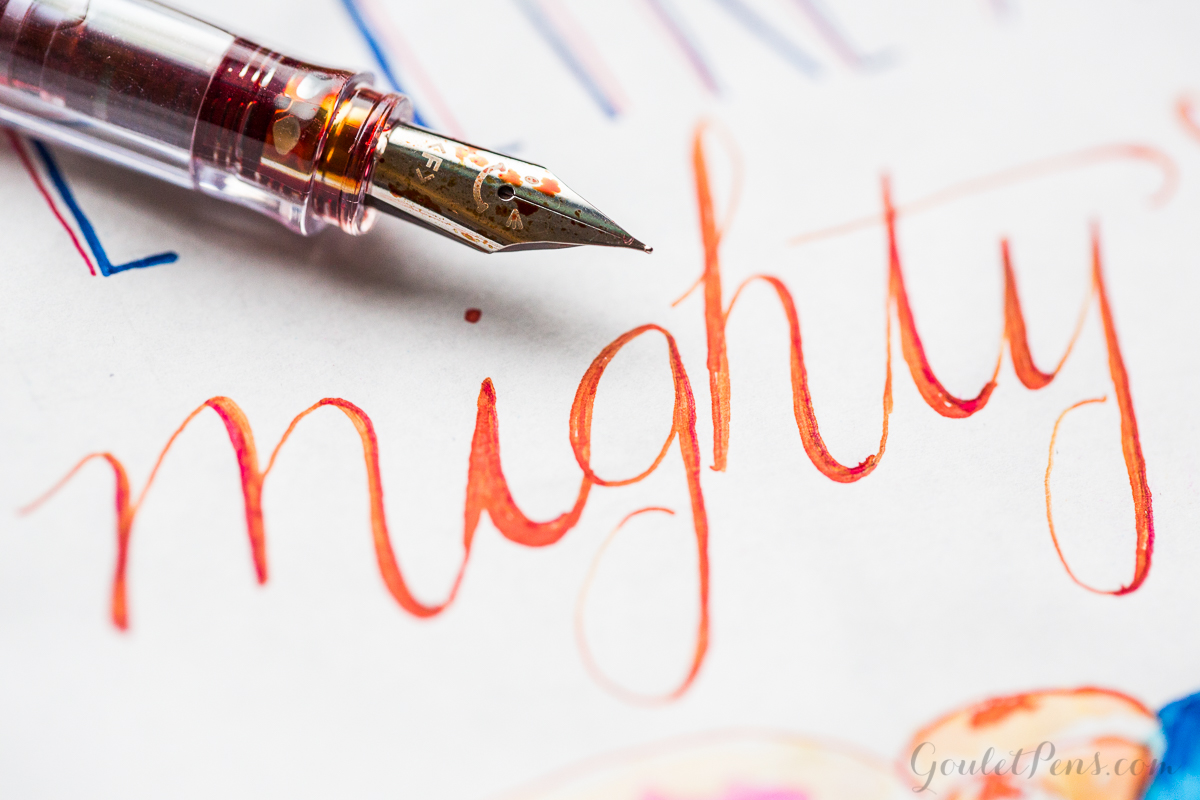 mighty
GouletPens.com